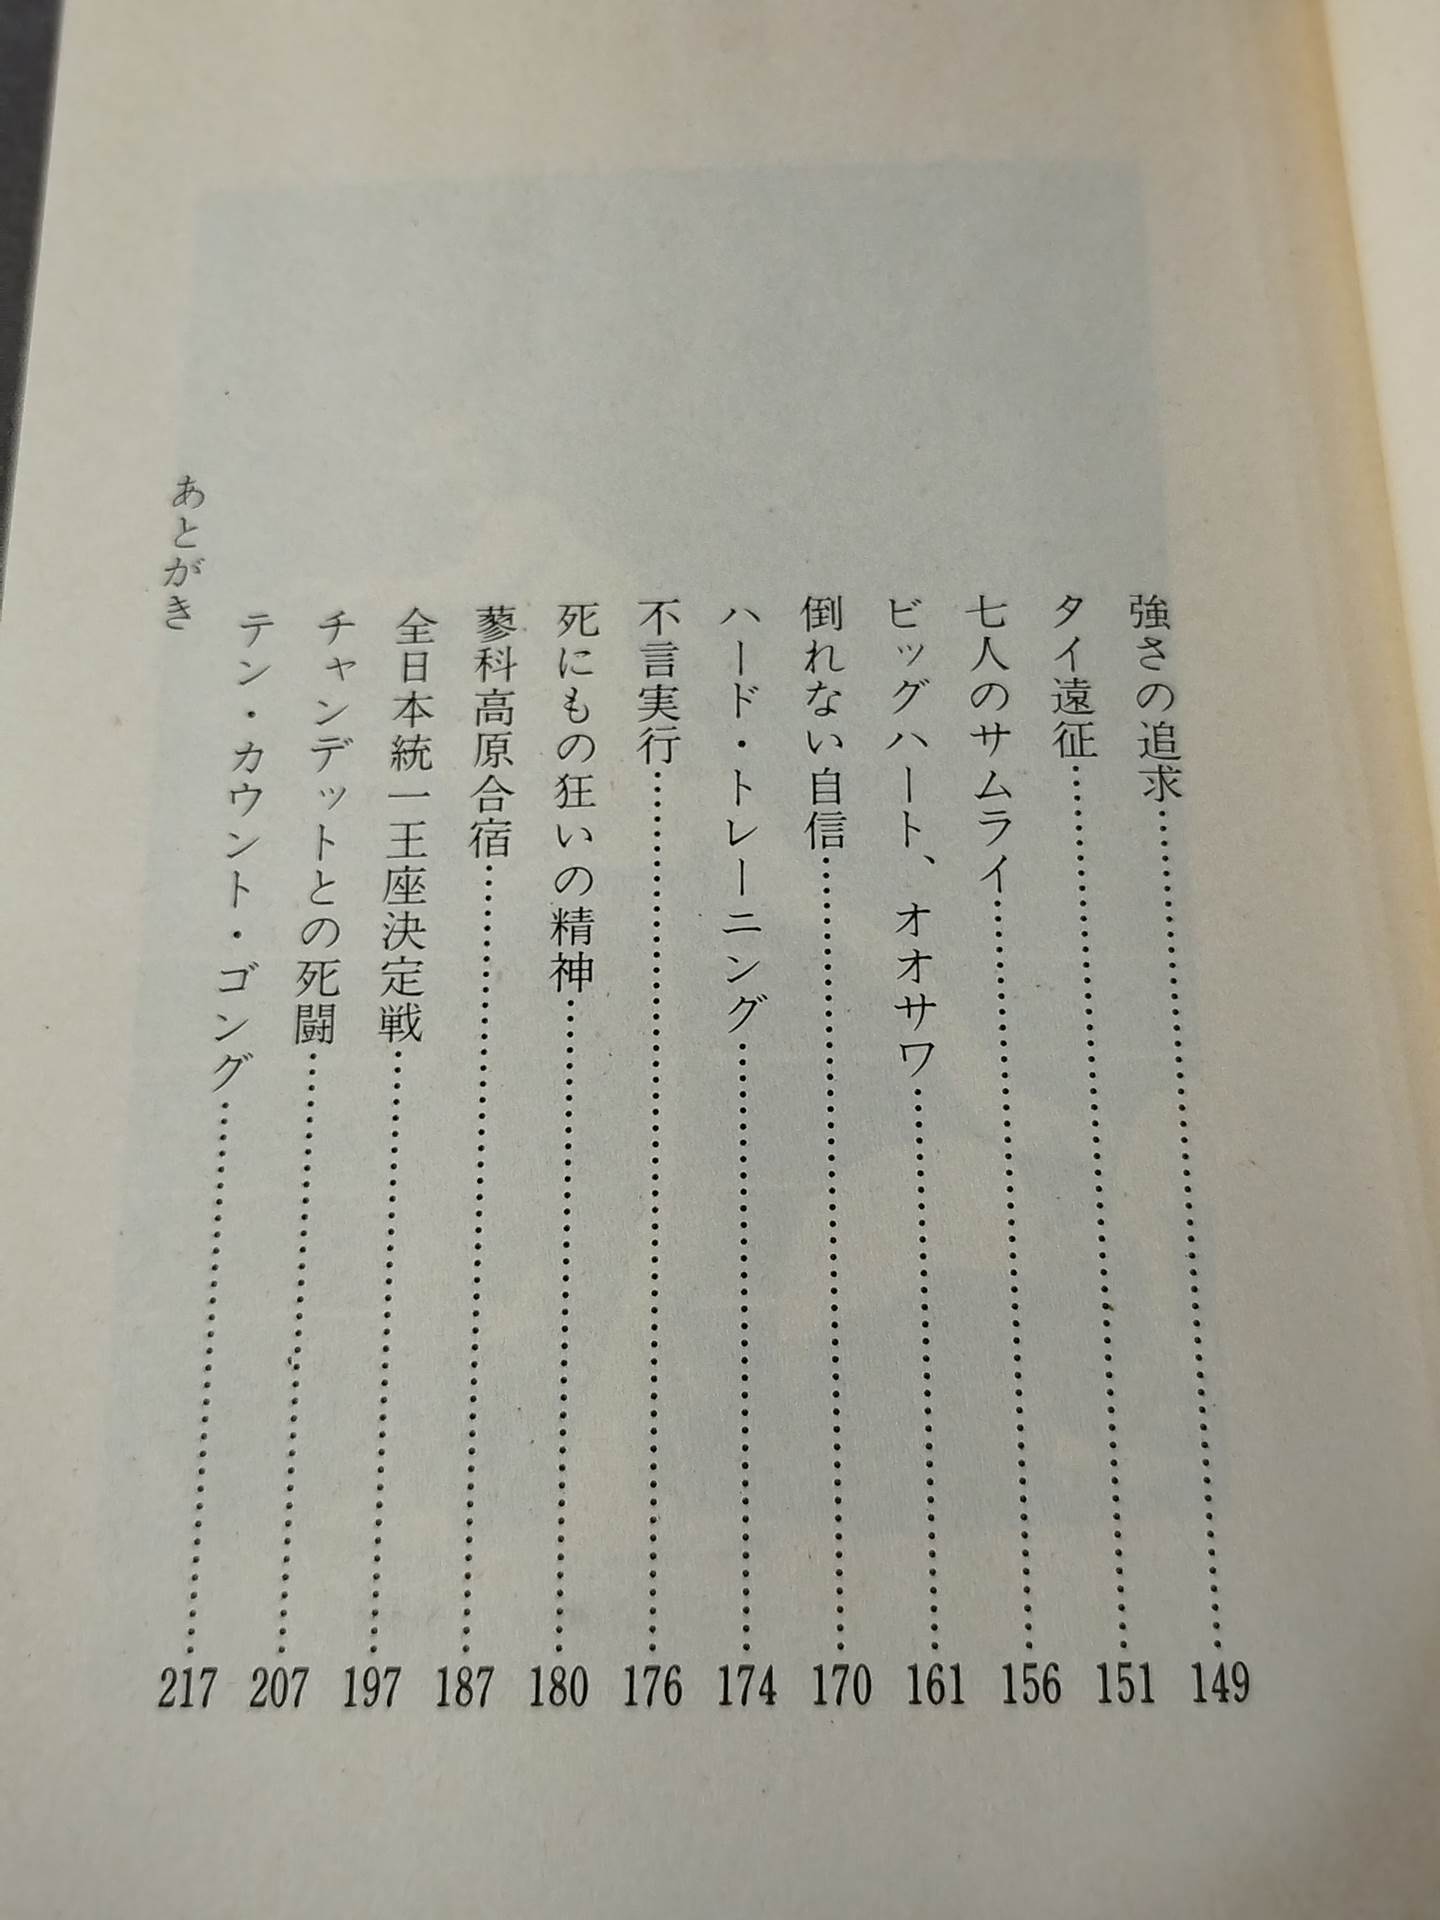 強さの追求……………………149
タイ遠征……………………151
七人のサムライ……………………156
ビッグハート、オオサワ……………………161
倒れない自信……………………170
ハード・トレーニング……………………174
不言実行……………………176
死にもの狂いの精神……………………180
蓼科高原合宿……………………187
全日本統一王座決定戦……………………197
チャンデットとの死闘……………………207
テン・カウント・ゴング……………………217
あとがき